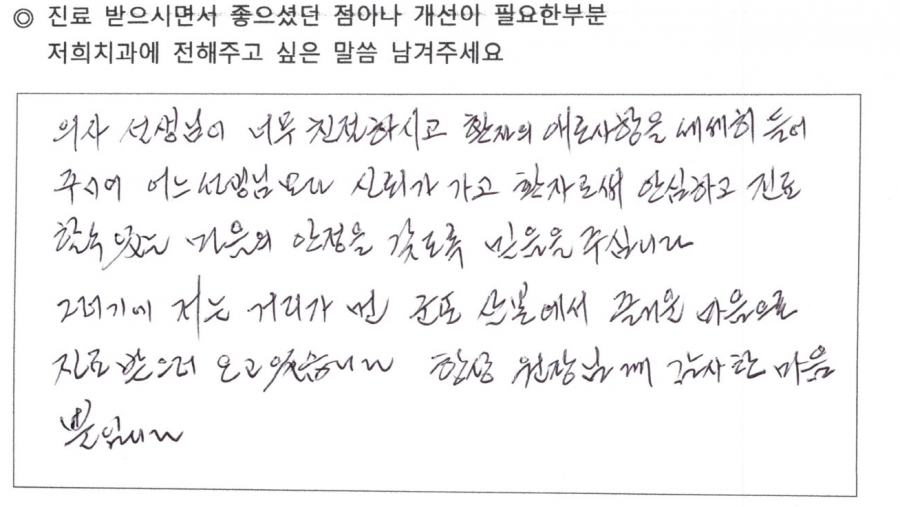 ◎ 진료 받으시면서 좋으셨던 점아나 개선아 필요한부분
저희치과에 전해주고 싶은 말씀 남겨주세요
의사 선생님이 너무 친절하시고 환자의 애로사항을 세세히 들어
주시여 어느선생님 보다 신뢰가 가고 환자로써 안심하고 진료
할수 있는 마음의 안정을 갖도록 믿음을 주십니다
그러기에 저는 거리가 먼 군포 산본에서 즐거운 마음으로
진료 받으러 오고있습니다 항상 원장님께 감사한 마음
뿐입니다